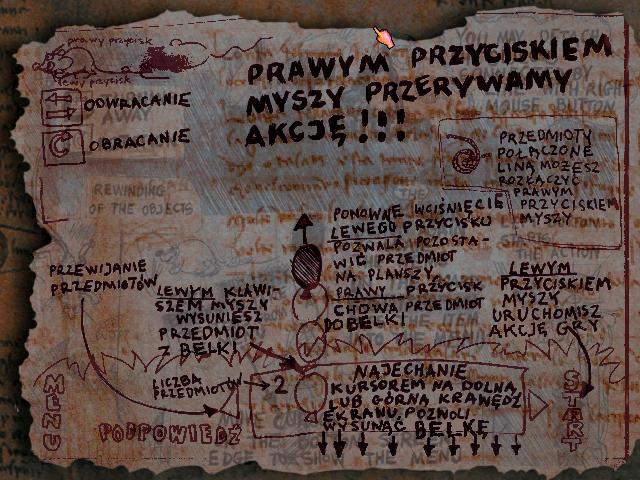 prawy przycisk
lewy przycisk
ODWRACANIE
OBRACANIE
PRAWYM PRZYCISKIEM
MYSZY PRZERYWAMY
AKCJĘ!!!
PRZEDMIOTY
POŁĄCZONE
LINĄ MOŻESZ
ROZŁĄCZYĆ
PRAWYM
PRZYCISKIEM
MYSZY
REWINDING
OF THE OBJECTS
PONOWNE WCIŚNIĘCIE
LEWEGO PRZYCISKU
POZWALA POZOSTA-
WIĆ PRZEDMIOT
NA PLANSZY,
PRAWY PRZYCISK
CHOWA PRZEDMIOT
DO BELKI
PRZEWIJANIE
PRZEDMIOTÓW
LEWYM KLAWI-
SZEM MYSZY
WYSUNIESZ
PRZEDMIOT
Z BELKI
LEWYM
PRZYCISKIEM
MYSZY
URUCHOMISZ
AKCJĘ GRY
LICZBA
PRZEDMIOTÓW
2
NAJECHANIE
KURSOREM NA DOLNĄ
LUB GÓRNĄ KRAWĘDŹ
EKRANU POZWOLI
WYSUNĄĆ BELKĘ
MENU
PODPOWIEDŹ
START
EDGE TO SHOW THE MENU